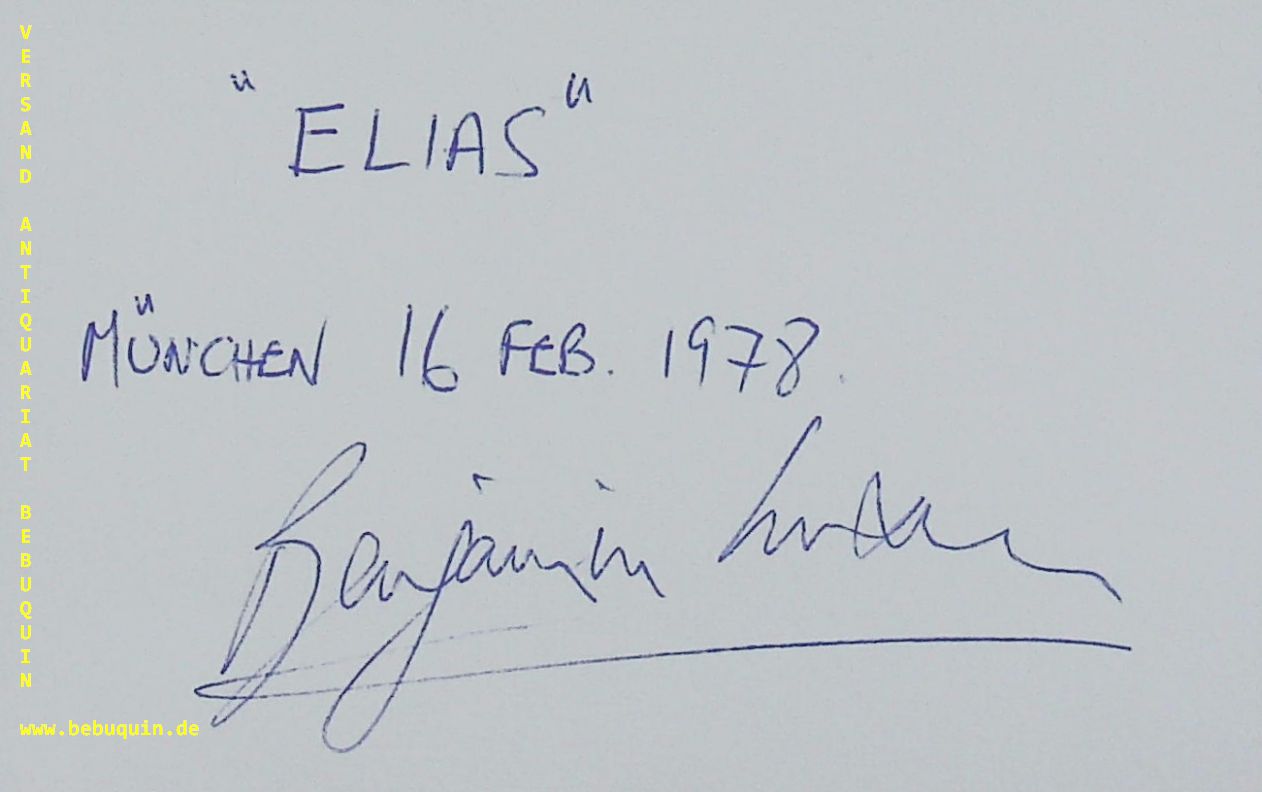 "ELIAS"
MÜNCHEN 16 FEB. 1978.
Benjamin
VERSAND ANTIQUARIAT BEBUQUIN
www.bebuquin.de